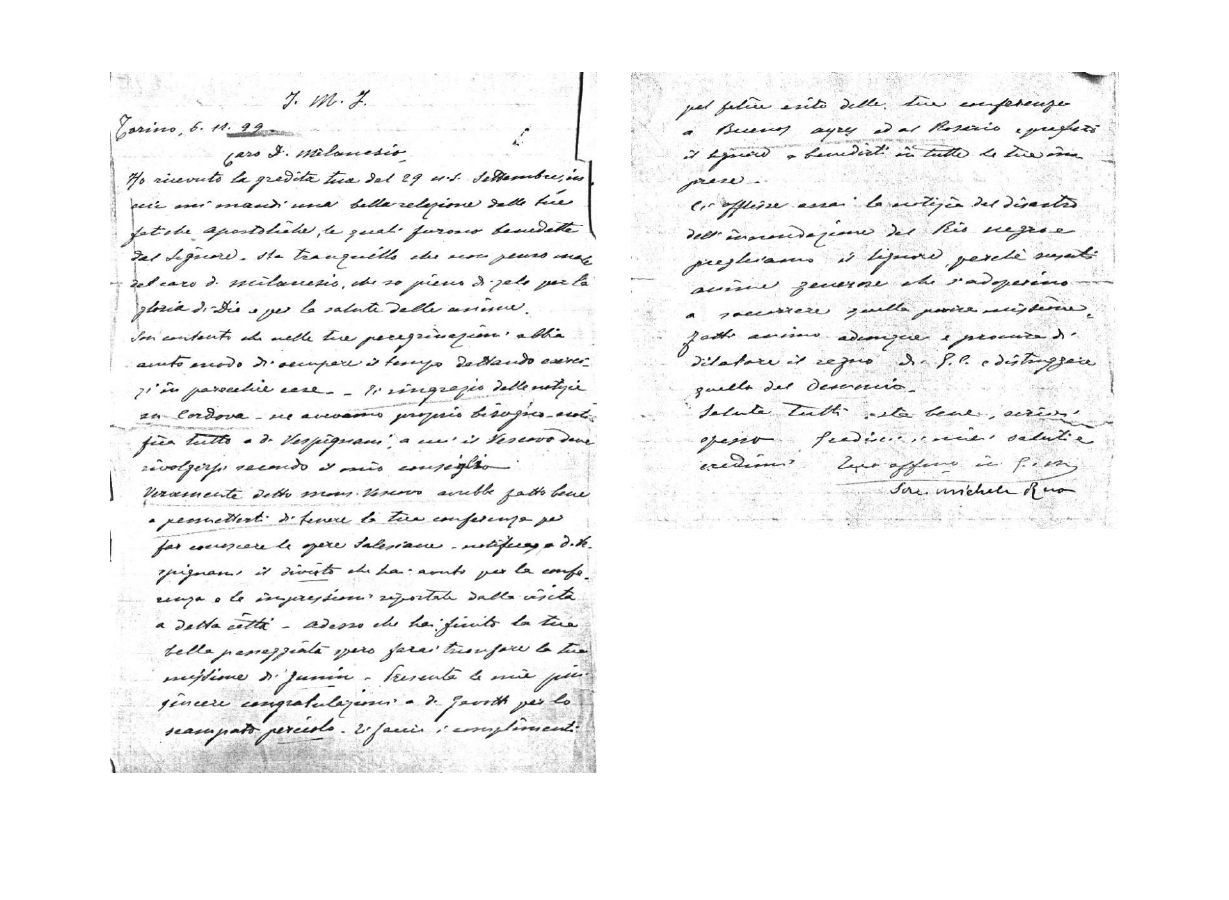 J. M. J.
Torino, 6. 11. 99.
Caro D. Milanesio
Ho ricevuto la gradita tua del 29 u.s. Settembre, in
cui mi mandi una bella relazione delle tue
fatiche apostoliche, le quali furono benedette
dal Signore. Sta tranquillo che non penso male
del caro D. Milanesio, che so pieno di zelo per la
gloria di Dio e per la salute delle anime.
Son contento che nelle tue peregrinazioni abbia
avuto modo di occupare il tempo dettando eserci-
zi in parecchie case. - Ti ringrazio delle notizie
su Cordova - ne avevamo proprio bisogno - noti
fica tutto a D. Vespignani, a cui il Vescovo deve
rivolgersi secondo il mio consiglio
Veramente detto mons. Vescovo avrebbe fatto bene
a permetterti di tenere la tua conferenza per
far conoscere le opere Salesiane - notifica a D. Ve-
spignani il divieto che hai avuto per la confe-
renza e le impressioni riportate dalla visita
a detta città - Adesso che hai finito la tua
bella passeggiata spero farai trionfare la tua
missione di Junin - Presenta le mie più
sincere congratulazioni a D. Gavotti per lo
scampato pericolo. Ti faccio i complimenti
pel felice esito delle tue conferenze
a Buenos ayres ed al Rosario e pregherò
il Signore a benedirti in tutte le tue im
prese -
Ci afflisse assai la notizia del disastro
dell'innondazione del Rio negro e
preghiamo il Signore perchè susciti
anime generose che s'adoperino
a soccorrere quella povera missione.
Fatti animo adunque e procura di
dilatare il regno di G. C. e distruggere
quello del demonio.
Saluta tutti, sta bene, scrivi
spesso gradisci i miei saluti e
credimi Tuo affmo in G. e M.
Sac. Michele Rua